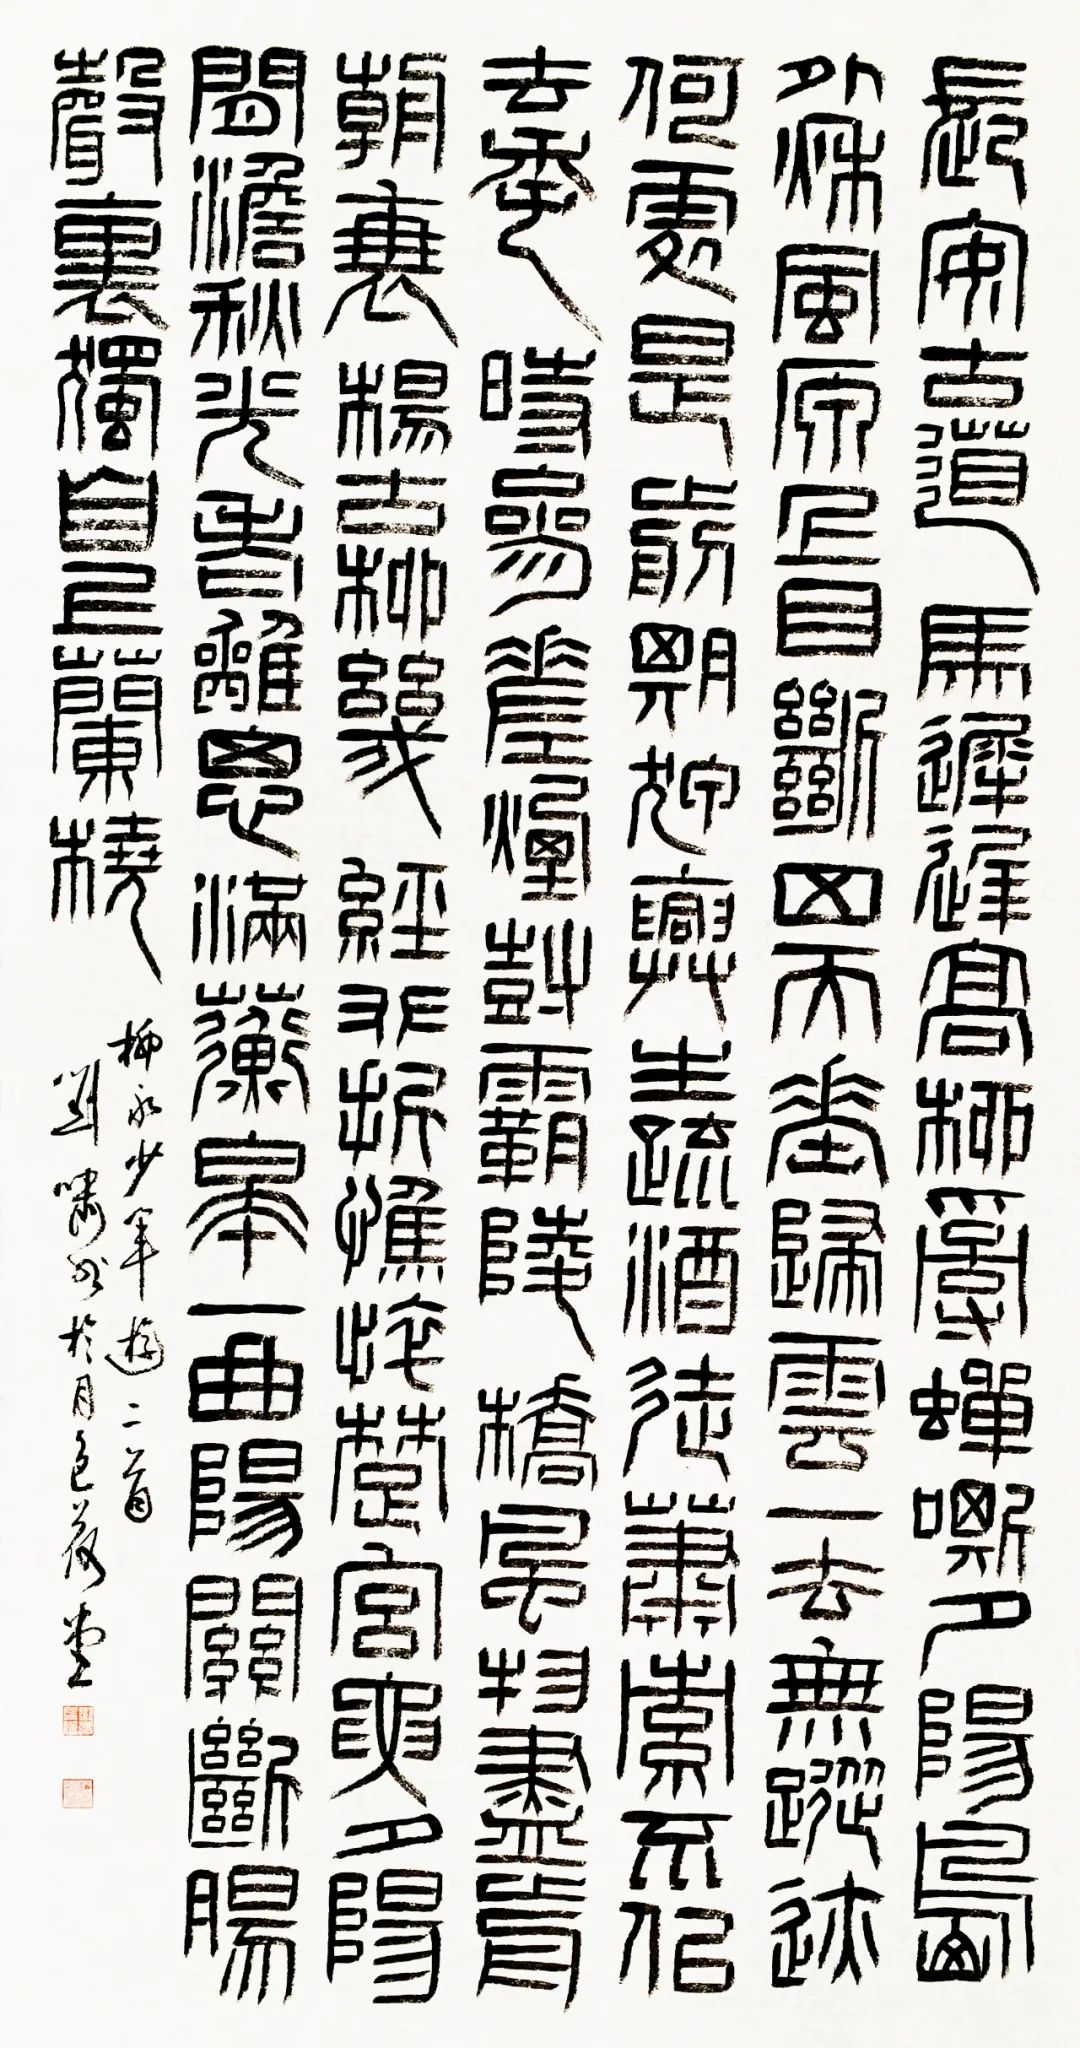 長安古道馬遲遲高柳亂蟬嘶夕陽島
外秋風原上目斷四天垂歸雲一去無蹤跡
何處是前期狎興生疏酒徒蕭索不似
去年時參差煙樹霸陵橋風物盡前
朝衰楊古柳幾經攀折憔悴楚宮腰夕陽
閒澹秋光老離思滿蘅皋一曲陽關斷腸
聲裏獨自上蘭橈
柳永少年遊二首
劉嘯於月色荷堂